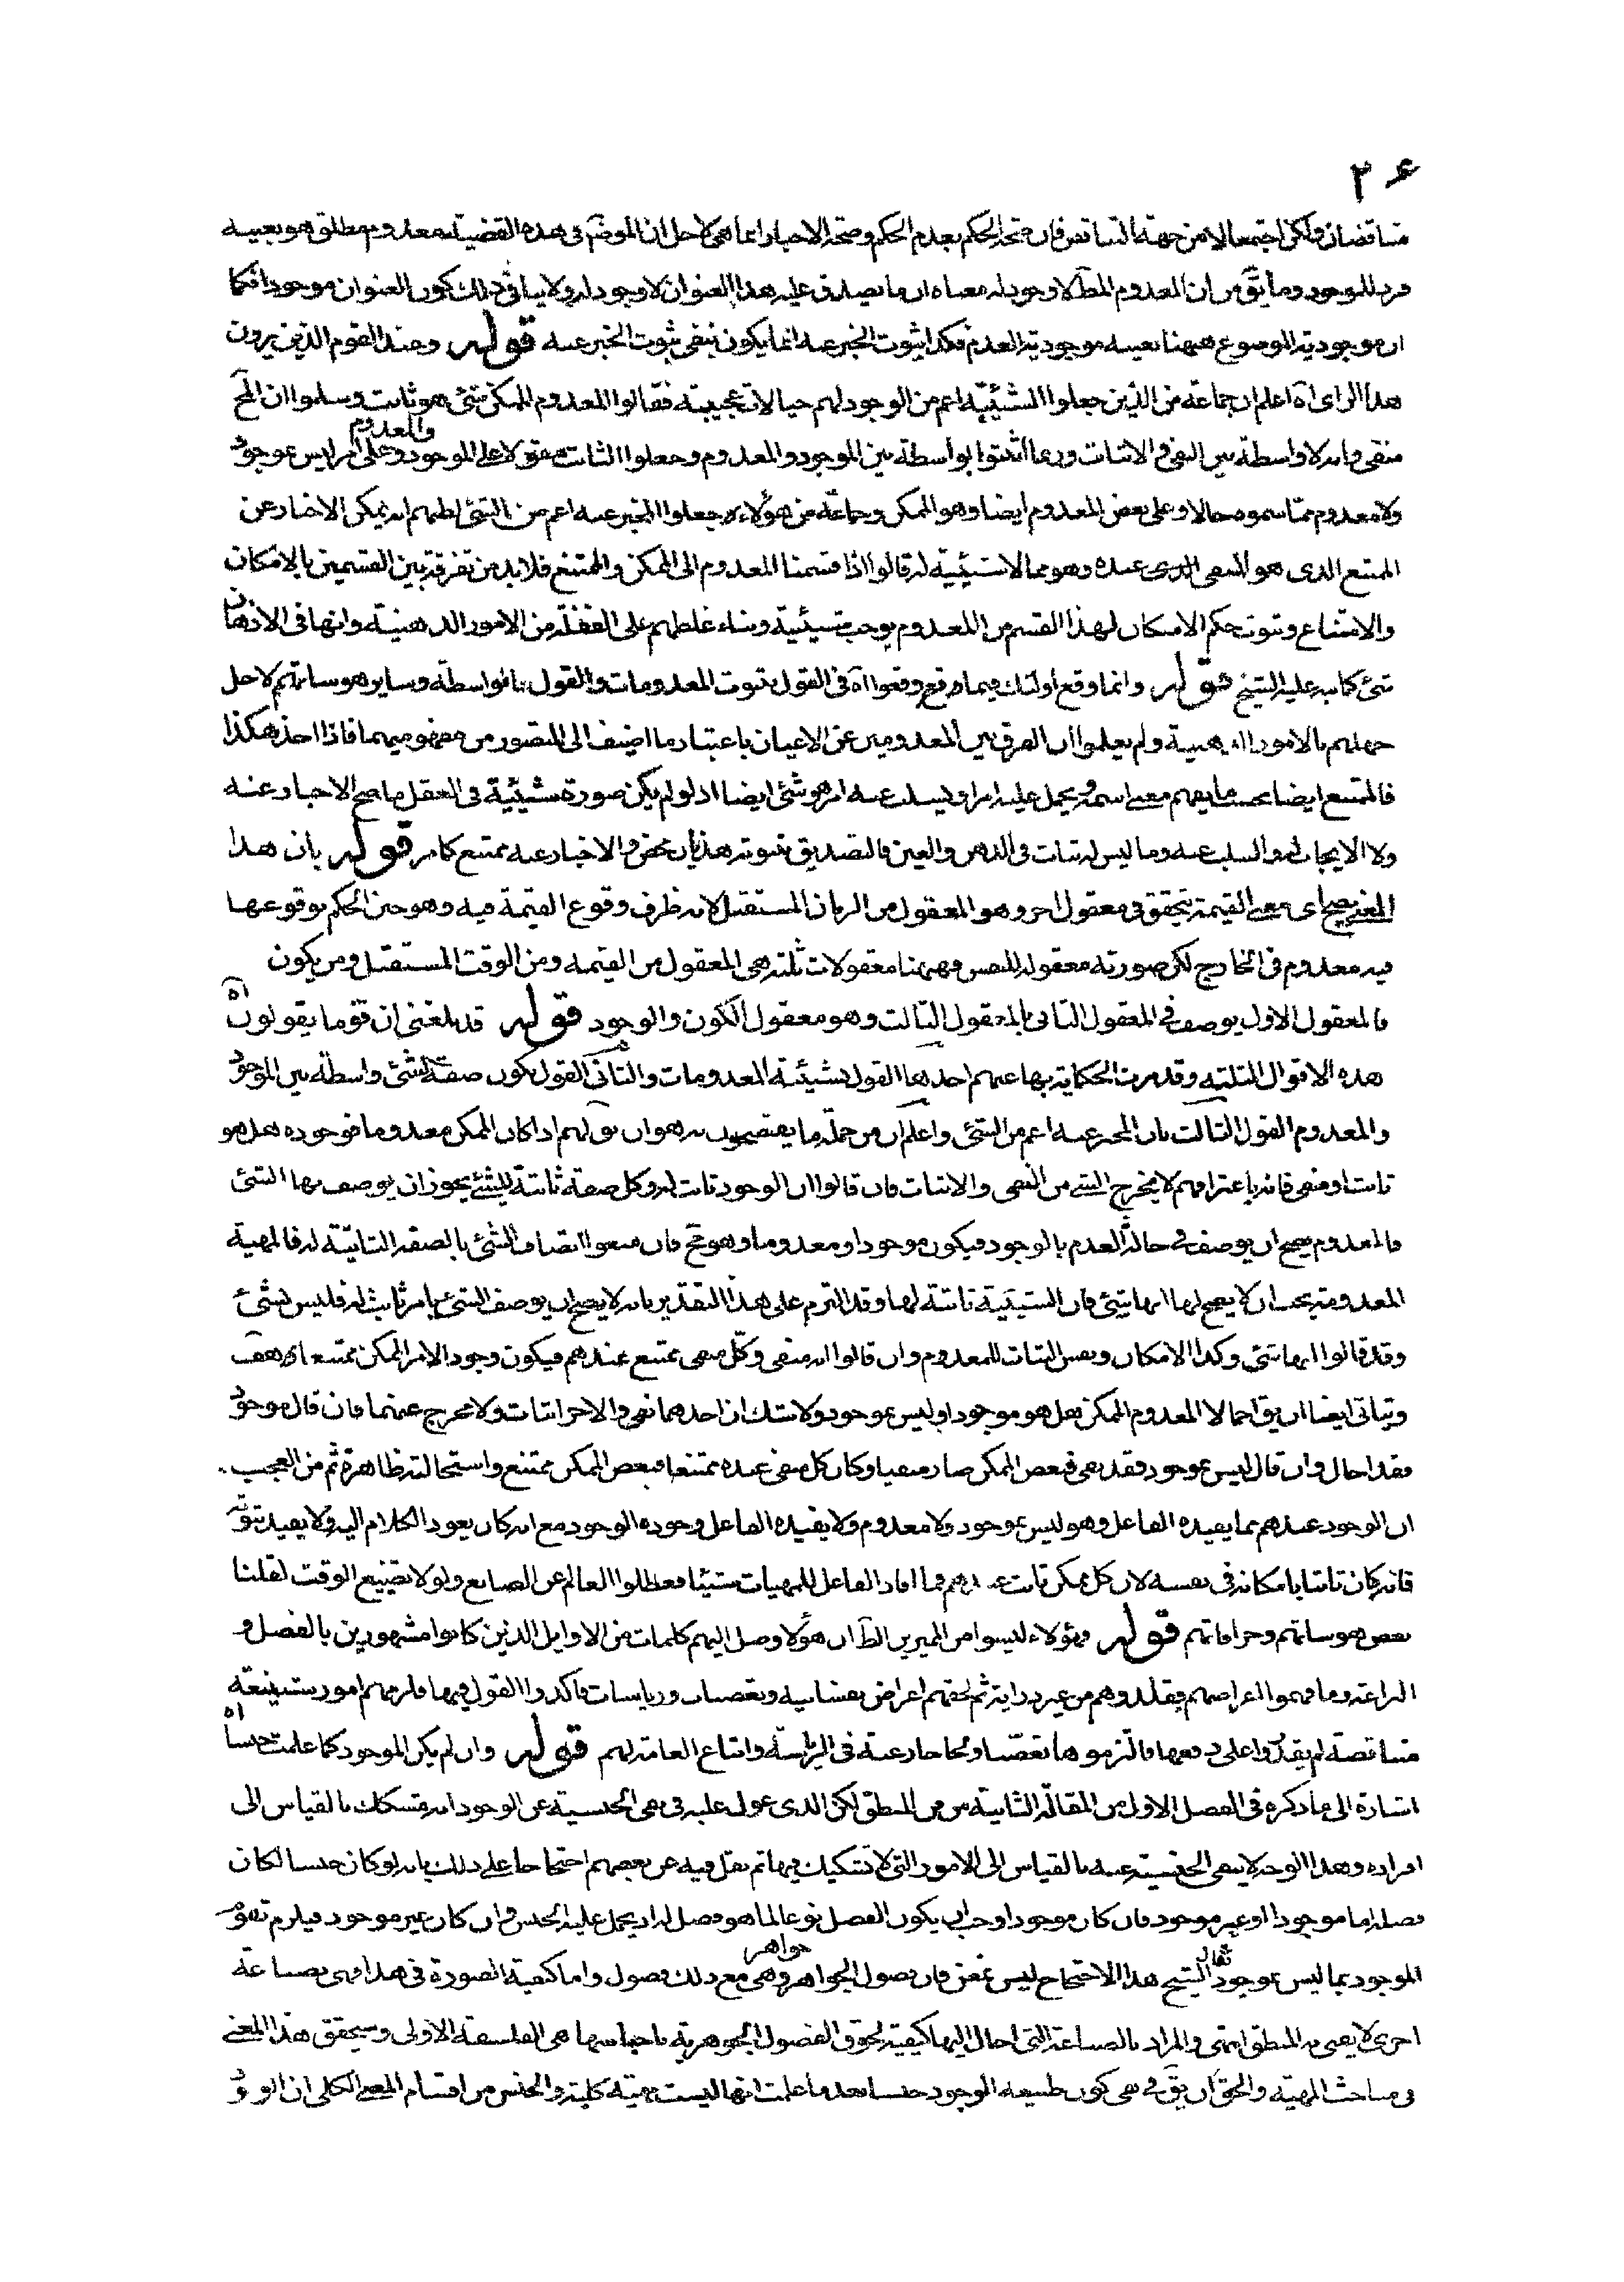 ۲۶
متناقضان ولكن اجتمعا لا من جهة التناقض فان صحة الحكم بعدم الحكم وصحة الاخبار انما هى لاجل ان الموضوع فى هذه القضية معدوم مطلق هو بعينه
فرد للموجود وما يق من ان المعدوم المط لا وجود له معناه ان ما يصدق عليه هذا العنوان لا وجود له ولا ينافى ذلك كون العنوان موجودا فكما
ان موجودية الموضوع ههنا بعينه موجودية العدم فكذا ثبوت الخبر عنه انما يكون بنفى ثبوت الخبر عنه قوله وعند القوم الذين يرون
هذا الراى آه اعلم ان جماعة من الذين جعلوا الشيئية اعم من الوجود لهم خيالات عجيبة فقالوا المعدوم الممكن شئ هو ثابت وسلموا ان المح
منفى وانه لا واسطة بين النفى والاثبات وربما اثبتوا بواسطة بين الموجود والمعدوم وجعلوا الثابت مقولا على الموجود والمعدوم وعلى امر ليس بموجود
ولا معدوم مما سموه حالا وعلى بعض المعدوم ايضا وهو الممكن وجماعة من هؤلاء جعلوا المخبر عنه اعم من الشئ لظنهم انه يمكن الاخبار عن
الممتنع الذى هو المنفى الذى عنده وهو مما لا شيئية له قالوا اذا قسمنا المعدوم الى الممكن والممتنع فلا بد من تفرقة بين القسمين بالامكان
والامتناع وثبوت حكم الامكان لهذا القسم من المعدوم يوجب شيئية وبناء غلطهم على الغفلة من الامور الذهنية وانها فى الاذهان
شئ كما نبه عليه الشيخ قوله وانما وقع اولئك فيما وقع وقعوا آه فى القول بثبوت المعدومات والقول بالواسطة وساير هوساتهم لاجل
جهلهم بالامور الذهنية ولم يعلموا ان الفرق بين المعدومين عن الاعيان باعتبار ما اضيف الى المتصور من مفهوميهما فاذا اخذ هكذا
فالممتنع ايضا بحسب ما يفهم معنى اسمه ويحمل عليه امر او يسلب عنه امر هو شئ ايضا اذ لو لم يكن صورة شيئية فى العقل ما صح الاخبار عنه
ولا الايجاب له والسلب عنه وما ليس له ثبات فى الذهن والعين فالتصديق بثبوته هذيان محض والاخبار عنه ممتنع كما مر قوله بان هذا
المعنى يصح اى معنى القيمة يتحقق فى معقول اخر وهو المعقول من الزمان المستقبل لانه ظرف وقوع القيمة فيه وهو حين الحكم بوقوعها
فيه معدوم فى الخارج لكن صورته معقولة للنفس فههنا معقولات ثلثة هى المعقول من القيمة ومن الوقت المستقبل ومن يكون
فالمعقول الاول يوصف فى المعقول الثانى بالمعقول الثالث وهو معقول الكون والوجود قوله قد بلغنى ان قوما يقولون آه
هذه الاقوال الثلثة وقد مرت الحكاية بها عنهم احدها القول بشيئية المعدومات والثانى القول بكون صفة الشئ واسطة بين الموجود
والمعدوم القول الثالث بان المخبر عنه اعم من الشئ واعلم ان من جملة ما يفتضحون به هو ان يق لهم اذا كان الممكن معدوما فوجوده هل هو
ثابت او منفى فانه باعترافهم لا يخرج الشئ من النفى والاثبات فان قالوا ان الوجود ثابت له وكل صفة ثابتة للشئ يجوز ان يوصف بها الشئ
فالمعدوم يصح ان يوصف فى حالة العدم بالوجود فيكون موجودا ومعدوما وهو مح فان منعوا اتصاف الشئ بالصفة الثابتة له فالمهية
المعدومة يجب ان لا يصح لها انها شئ فان الشيئية ثابتة لها وقد التزم على هذا التقدير بانه لا يصح ان يوصف الشئ بامر ثابت له فليس بشئ
وقد قالوا انها شئ وكذا الامكان ونفس الثبات للمعدوم وان قالوا انه منفى وكل منفى ممتنع عندهم فيكون وجود الامر الممكن ممتنعا هف
ويتاتى ايضا ان يق اجمالا المعدوم الممكن هل هو موجود او ليس بموجود ولا شك ان احدهما نفى والاخر اثبات ولا مخرج عنهما فان قال موجود
فقد احال وان قال ليس بموجود فقد نفى فبعض الممكن صار منفيا وكان كل منفى عنده ممتنعا فبعض الممكن ممتنع واستحالته ظاهرة ثم من العجب
ان الوجود عندهم مما يفيده الفاعل وهو ليس بموجود ولا معدوم ولا يفيده الفاعل وجوده الوجود مع انه كان يعود الكلام اليه ولا يفيد ثبوته
فانه كان ثابتا بامكانه فى نفسه لان كل ممكن ثابت عندهم فما افاد الفاعل للمهيات شيئا فعطلوا العالم عن الصانع ولولا تضييع الوقت لنقلنا
بعض هوساتهم وخرافاتهم قوله فهؤلاء ليسوا من المميزين الظ ان هؤلاء وصل اليهم كلمات من الاوايل الذين كانوا مشهورين بالفضل و
البراعة وما فهموا اغراضهم فقلدوهم من غير دراية ثم لحقهم اغراض نفسانيه وتعصبات ورياسات فاكدوا القول فيها فلزمهم امور شنيعة
متناقضة لم يقدروا على دفعها فالتزموها تعصبا ولجاجا رعبة فى الرياسة واتباع العامة لهم قوله وان لم يكن الموجود كما علمت جنسا آه
اشارة الى ما ذكره فى الفصل الاول من المقالة الثانية من فن المنطق لكن الذى عول عليه فى نفى الجنسية عن الوجود انه متشكك بالقياس الى
افراده وهذا الوجه لا ينفى الجنسية عنه بالقياس الى الامور التى لا تشكيك فيها ثم نقل فيه عن بعضهم احتجاجا على ذلك بانه لو كان جنسا لكان
فصله اما موجودا او غير موجود فان كان موجودا وجب ان يكون الفصل نوعا لما هو فصل له اذ يحمل عليه الجنس وان كان غير موجود فيلزم تقوم
الموجود بما ليس بموجود فقال الشيخ هذا الاحتجاج ليس بمغن فان فصول الجواهر جواهر وهى مع ذلك فصول واما كيفية الصورة فى هذا فهى بصناعة
اخرى لا يفى به المنطق انتهى والمراد بالصناعة التى احال اليها كيفية لحوق الفصول الجوهرية باجناسها هى الفلسفة الاولى وسيحقق هذا المعنى
فى مباحث المهية والحق ان يق فى نفى كون طبيعه الموجود جنسا بعد ما علمت انها ليست مهية كلية والجنس من اقسام المعنى الكلى ان